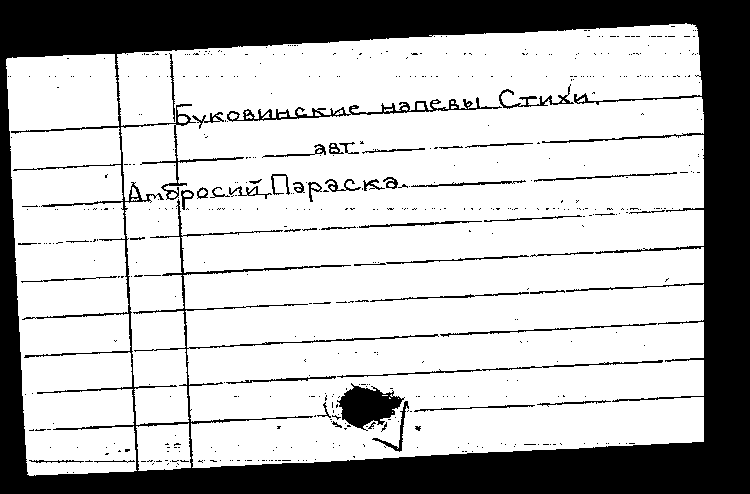 Буковинские напевы Стихи.
авт:
Амбросий, Параска.